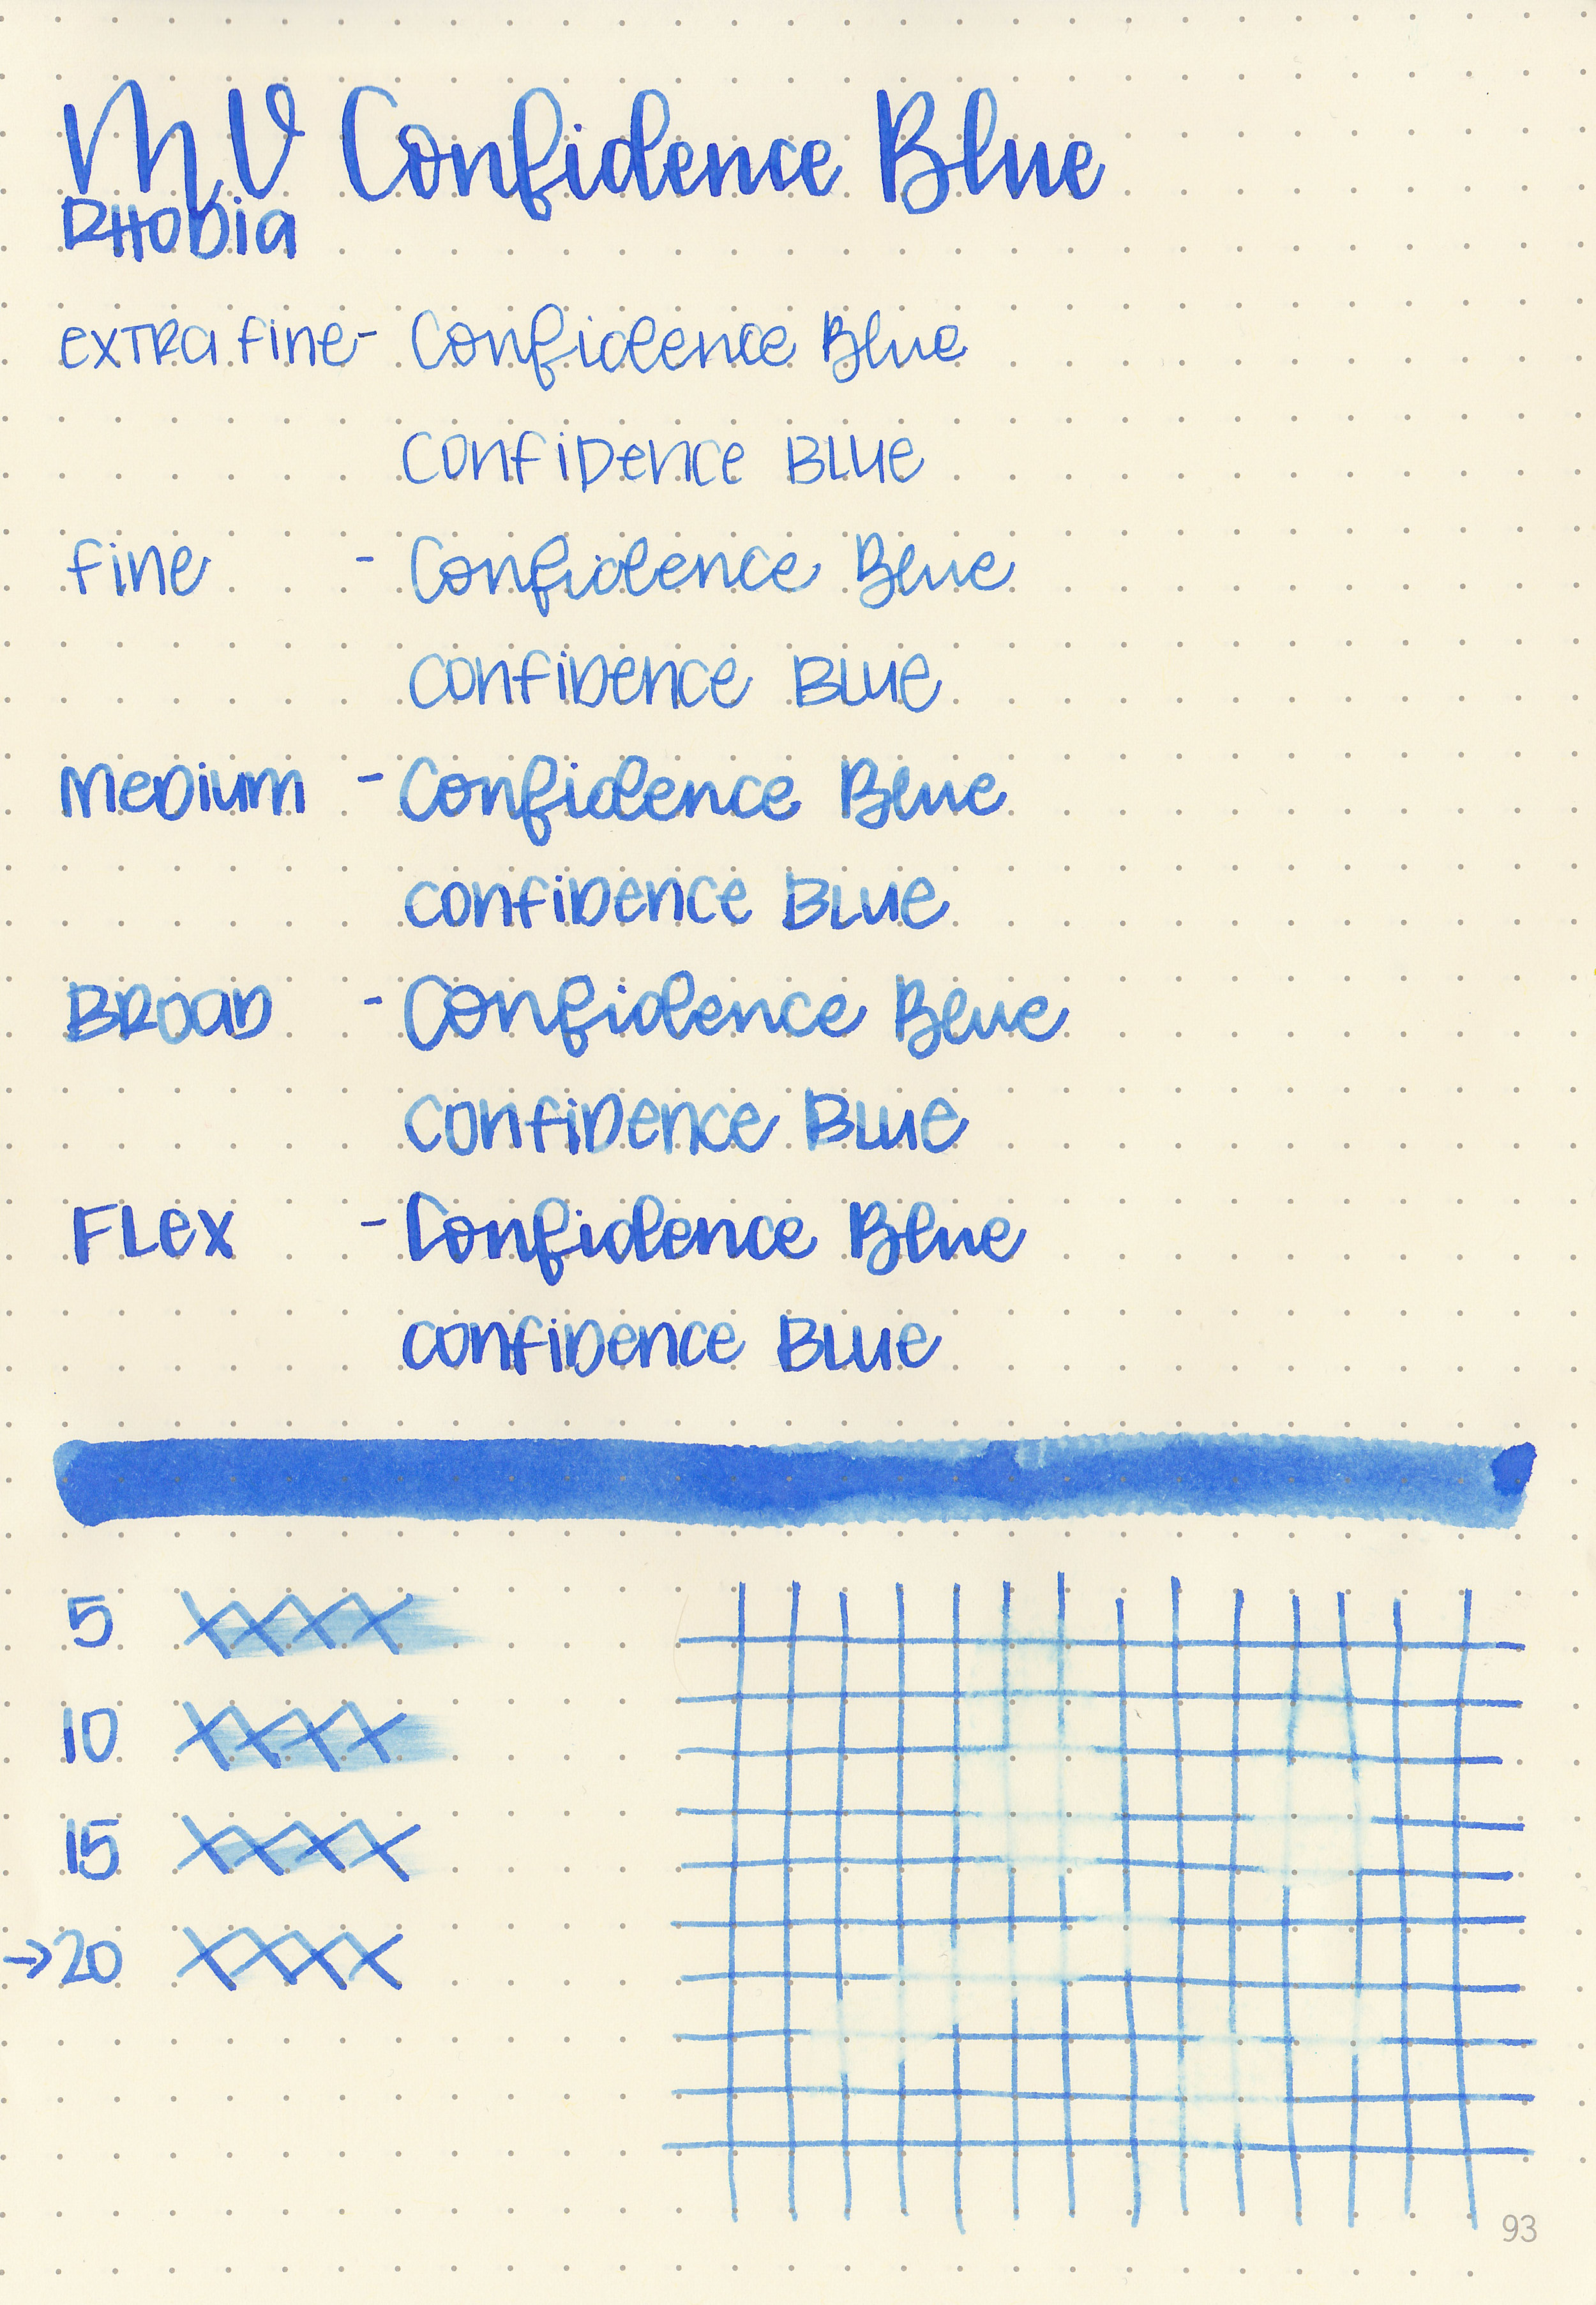 MV Confidence Blue
RHODia
eXTRa fine - Confidence Blue
confiDence BLue
fine - Confidence Blue
confiDence BLue
MeDium - Confidence Blue
confiDence BLue
BROaD - Confidence Blue
confiDence BLue
FLex - Confidence Blue
confiDence BLue
5
10
15
→20
93